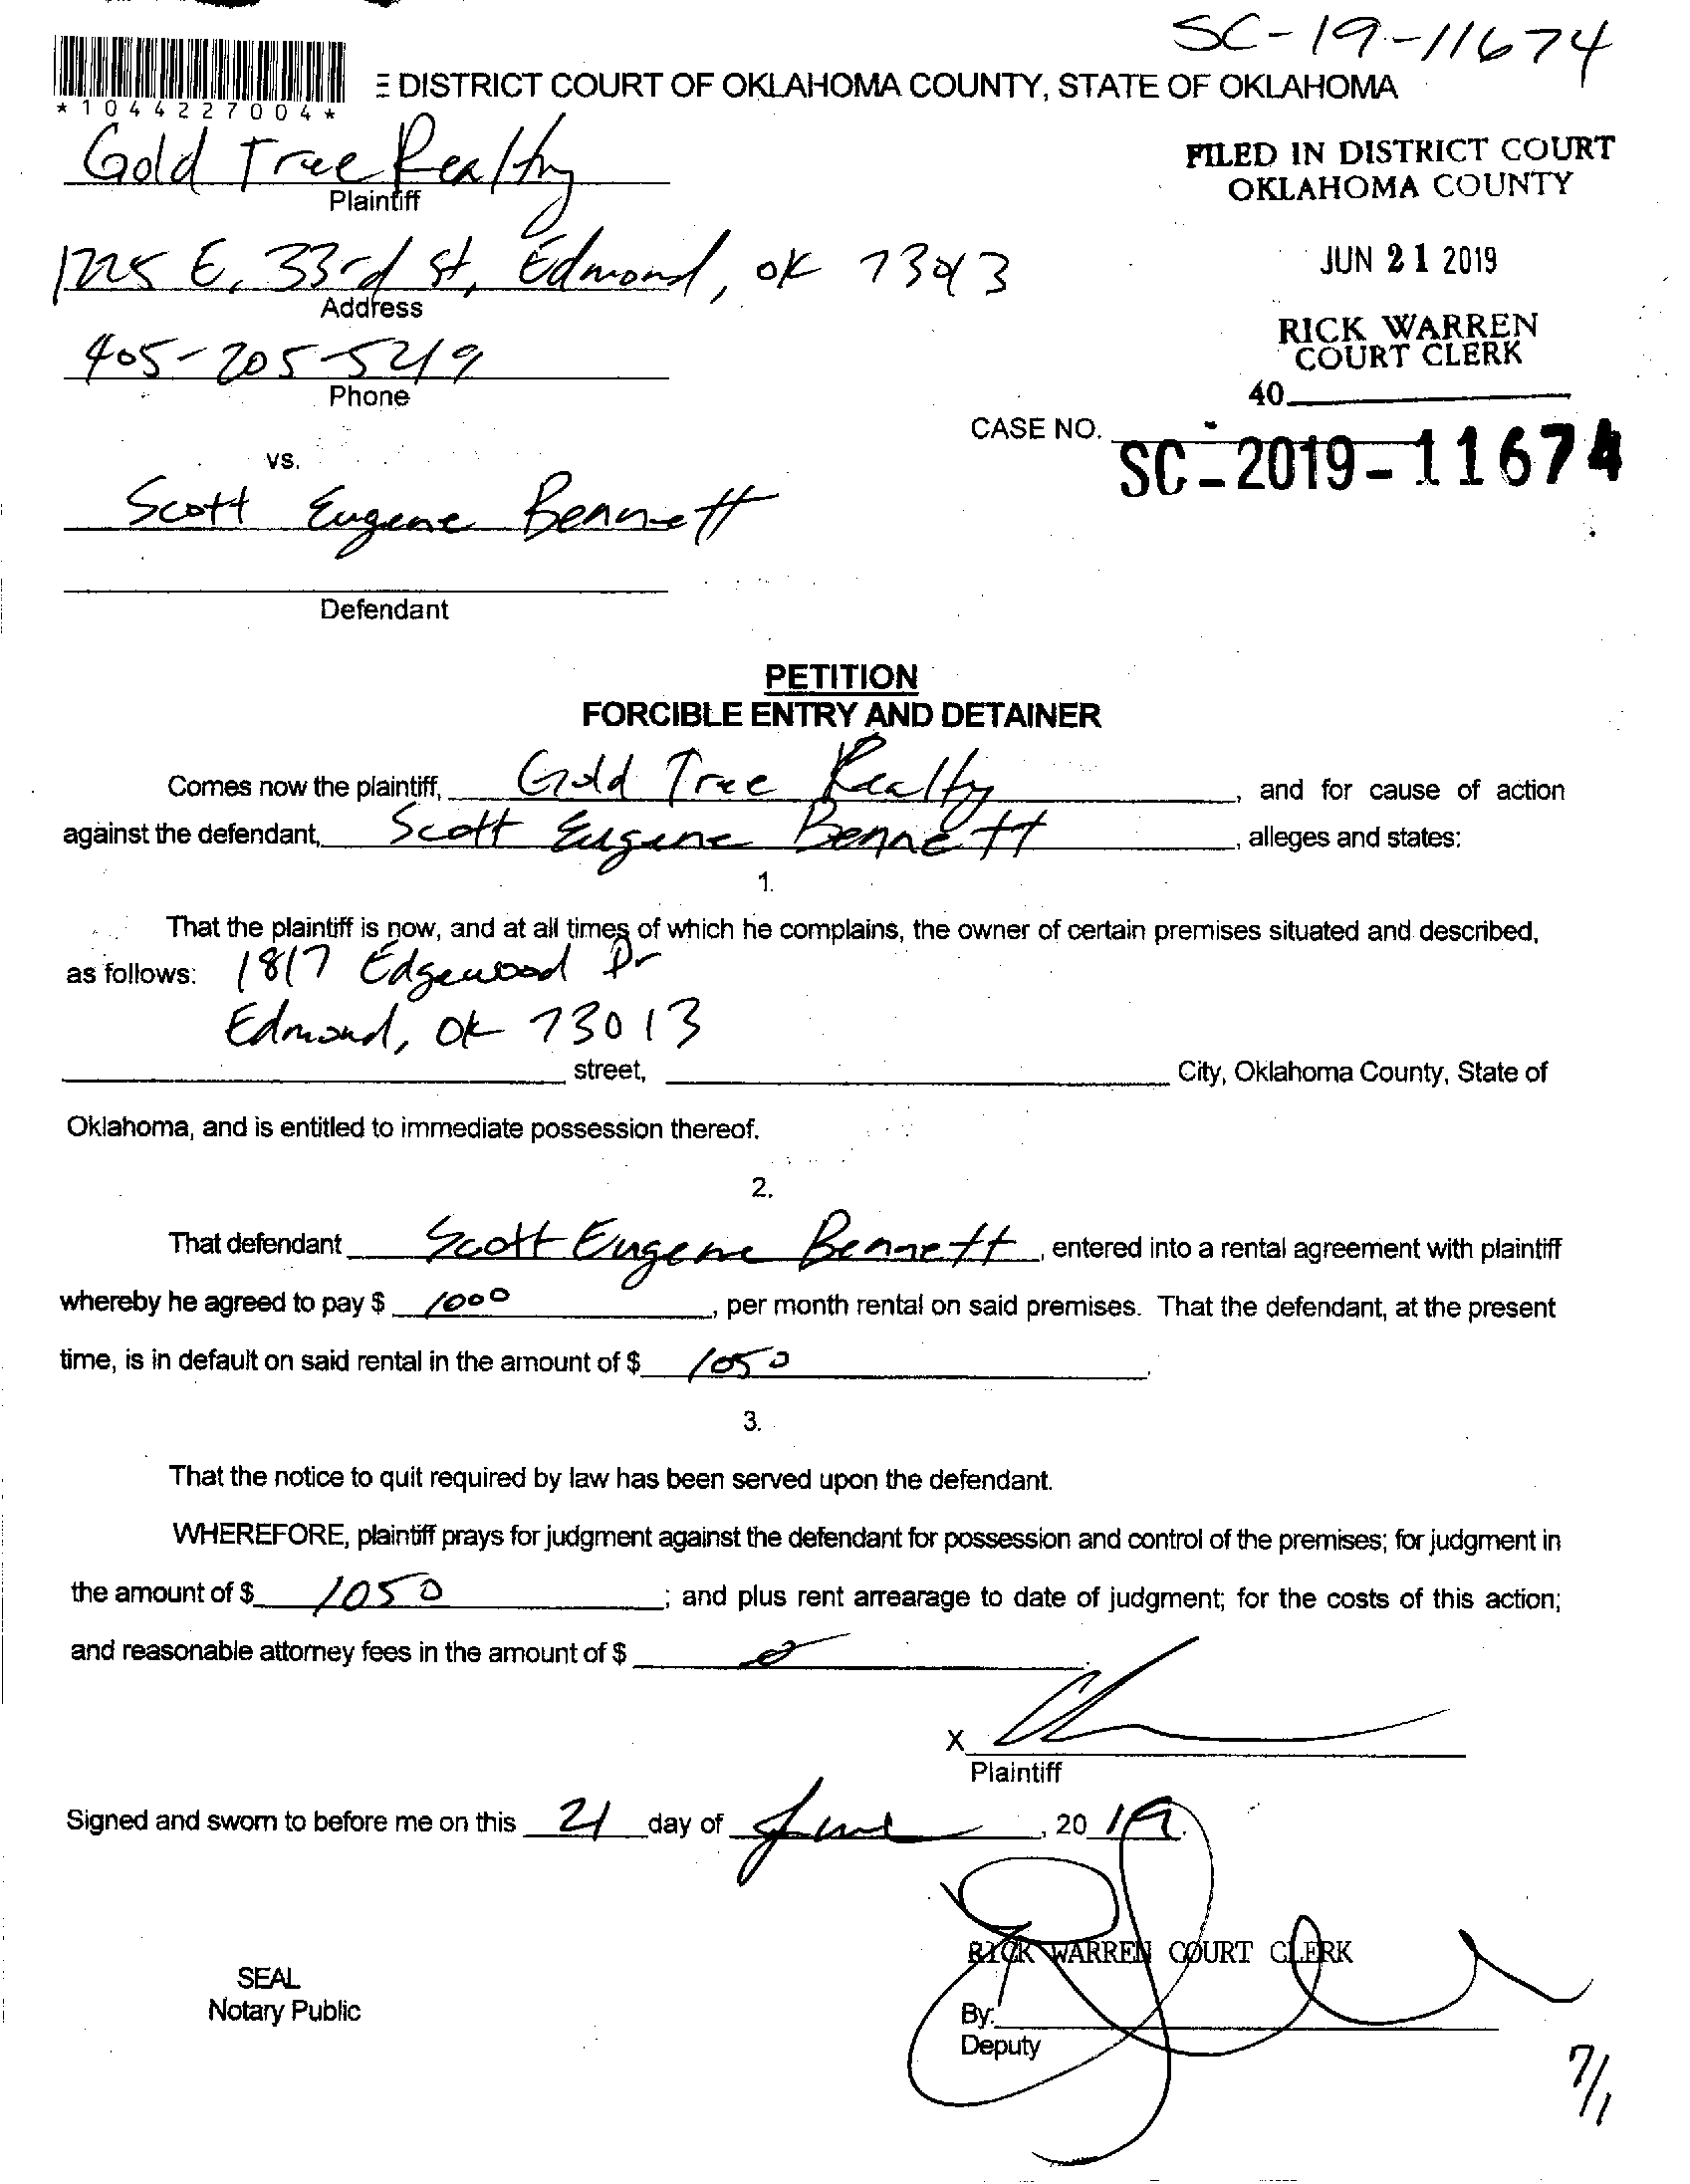 SC-19-11674
*1044227004*
E DISTRICT COURT OF OKLAHOMA COUNTY, STATE OF OKLAHOMA
Gold Tree Realty
Plaintiff
FILED IN DISTRICT COURT
OKLAHOMA COUNTY
1725 E. 33rd St, Edmond, OK
Address
JUN 21 2019
RICK WARREN
COURT CLERK
405-205-5219
Phone
40
CASE NO. SC-2019-11674
vs.
Scott Eugene Bennett
Defendant
PETITION
FORCIBLE ENTRY AND DETAINER
Comes now the plaintiff, Gold Tree Realty, and for cause of action
against the defendant, Scott Eugene Bennett, alleges and states:
1.
That the plaintiff is now, and at all times of which he complains, the owner of certain premises situated and described,
as follows: 1817 Edgewood Dr
Edmond, OK 73013
street, City, Oklahoma County, State of
Oklahoma, and is entitled to immediate possession thereof.
2.
That defendant Scott Eugene Bennett, entered into a rental agreement with plaintiff
whereby he agreed to pay $ 1000, per month rental on said premises. That the defendant, at the present
time, is in default on said rental in the amount of $ 1050.
3.
That the notice to quit required by law has been served upon the defendant.
WHEREFORE, plaintiff prays for judgment against the defendant for possession and control of the premises; for judgment in
the amount of $ 1050; and plus rent arrearage to date of judgment; for the costs of this action;
and reasonable attorney fees in the amount of $ 0
X
Plaintiff
Signed and sworn to before me on this 21 day of June, 2019.
RICK WARREN COURT CLERK
SEAL
Notary Public
By:
Deputy
7/1